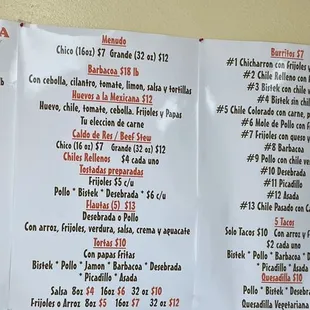 A
Menudo
Chico (16oz) $7 Grande (32 oz) $12
Barbacoa $18 lb
Con cebolla, cilantro, tomate, limon, salsa y tortillas
Huevos a la Mexicana $12
Huevo, chile, tomate, cebolla. Frijoles y Papas
Tu eleccion de carne
Caldo de Res / Beef Stew
Chico (16 oz) $7 Grande (32 oz) $12
Chiles Rellenos $4 cada uno
Tostadas preparadas
Frijoles $5 c/u
Pollo * Bistek * Desebrada * $6 c/u
Flautas (5) $13
Desebrada o Pollo
Con arroz, frijoles, verdura, salsa, crema y aguacate
Tortas $10
Con papas fritas
Bistek * Pollo * Jamon * Barbacoa * Desebrada
* Picadillo * Asada
Salsa 8oz $4 16oz $6 32 oz $10
Frijoles o Arroz 8oz $5 16oz $7 32 oz $12
lb
Burritos $7
#1 Chicharron con Frijoles y
#2 Chile Relleno con
#3 Bistek con chile
#4 Bistek sin
#5 Chile Colorado con carne, p
#6 Mole de Pollo con F
#7 Frijoles con queso y
#8 Barbacoa
#9 Pollo con chile ve
#10 Desebrada
#11 Picadillo
#12 Asada
#13 Chile Pasado con Ca
5 Tacos
Solo Tacos $10 Con arroz y F
$2 cada uno
Bistek * Pollo * Barbacoa * Des
* Picadillo * Asada
Quesadilla $10
Pollo * Bistek * Desebra
Quesadilla Vegetariana